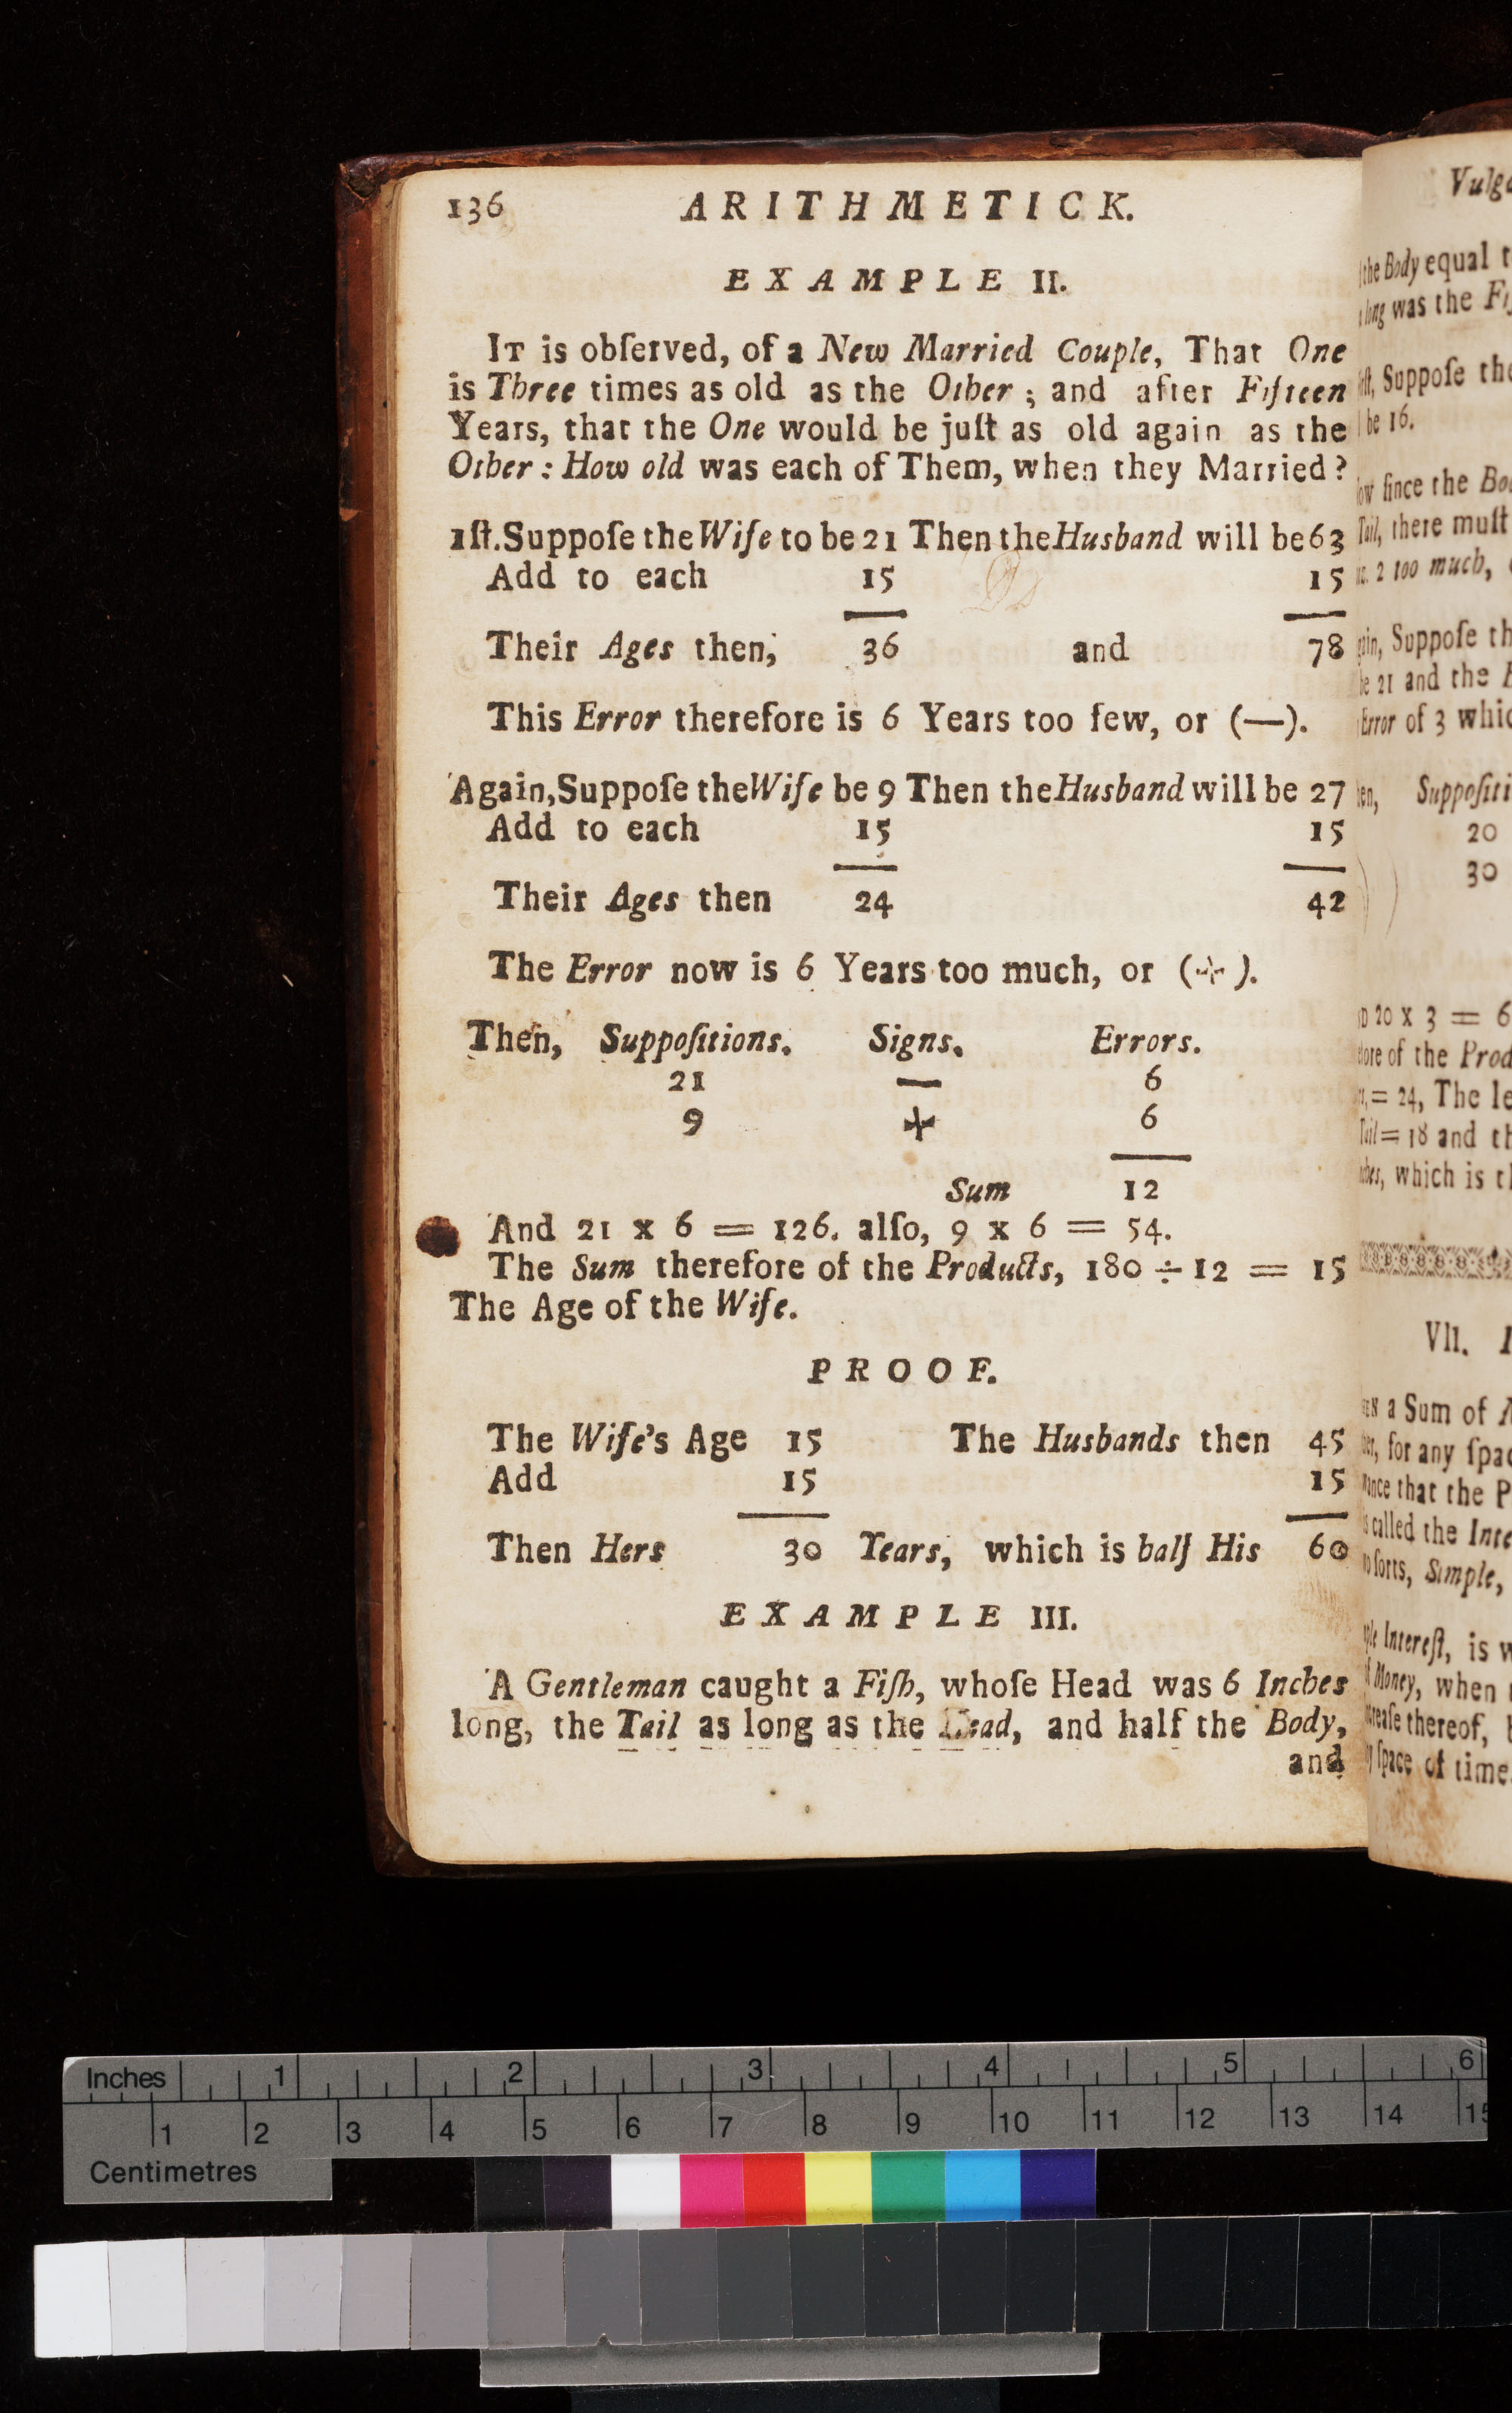 136 ARITHMETICK.
EXAMPLE II.
IT is obſerved, of a New Married Couple, That One
is Three times as old as the Other ; and after Fifteen
Years, that the One would be juſt as old again as the
Other : How old was each of Them, when they Married?
1ſt.Suppoſe the Wife to be 21 Then the Husband will be 63
Add to each 15 15
Their Ages then, 36 and 78
This Error therefore is 6 Years too few, or (—).
Again,Suppoſe the Wife be 9 Then the Husband will be 27
Add to each 15 15
Their Ages then 24 42
The Error now is 6 Years too much, or (+).
Then, Suppoſitions. Signs. Errors.
21 — 6
9 + 6
Sum 12
And 21 x 6 = 126. alſo, 9 x 6 = 54.
The Sum therefore of the Products, 180 ÷ 12 = 15
The Age of the Wife.
PROOF.
The Wife's Age 15 The Husbands then 45
Add 15 15
Then Hers 30 Years, which is half His 60
EXAMPLE III.
A Gentleman caught a Fiſh, whoſe Head was 6 Inches
long, the Tail as long as the Head, and half the Body,
and
the Body equal
was the
Suppoſe the
be 16.
ſince the
Tail, there muſt
2 too much,
Suppoſe
21 and the
Error of 3
20
30
20 x 3 = 6
of the
= 24, The
Tail = 18 and
which is
VII.
a Sum of
for any
that the
called the
ſorts, Simple,
Intereſt, is
Money, when
thereof,
ſpace of time
Inches 1 2 3 4 5 6
1 2 3 4 5 6 7 8 9 10 11 12 13 14 15
Centimetres